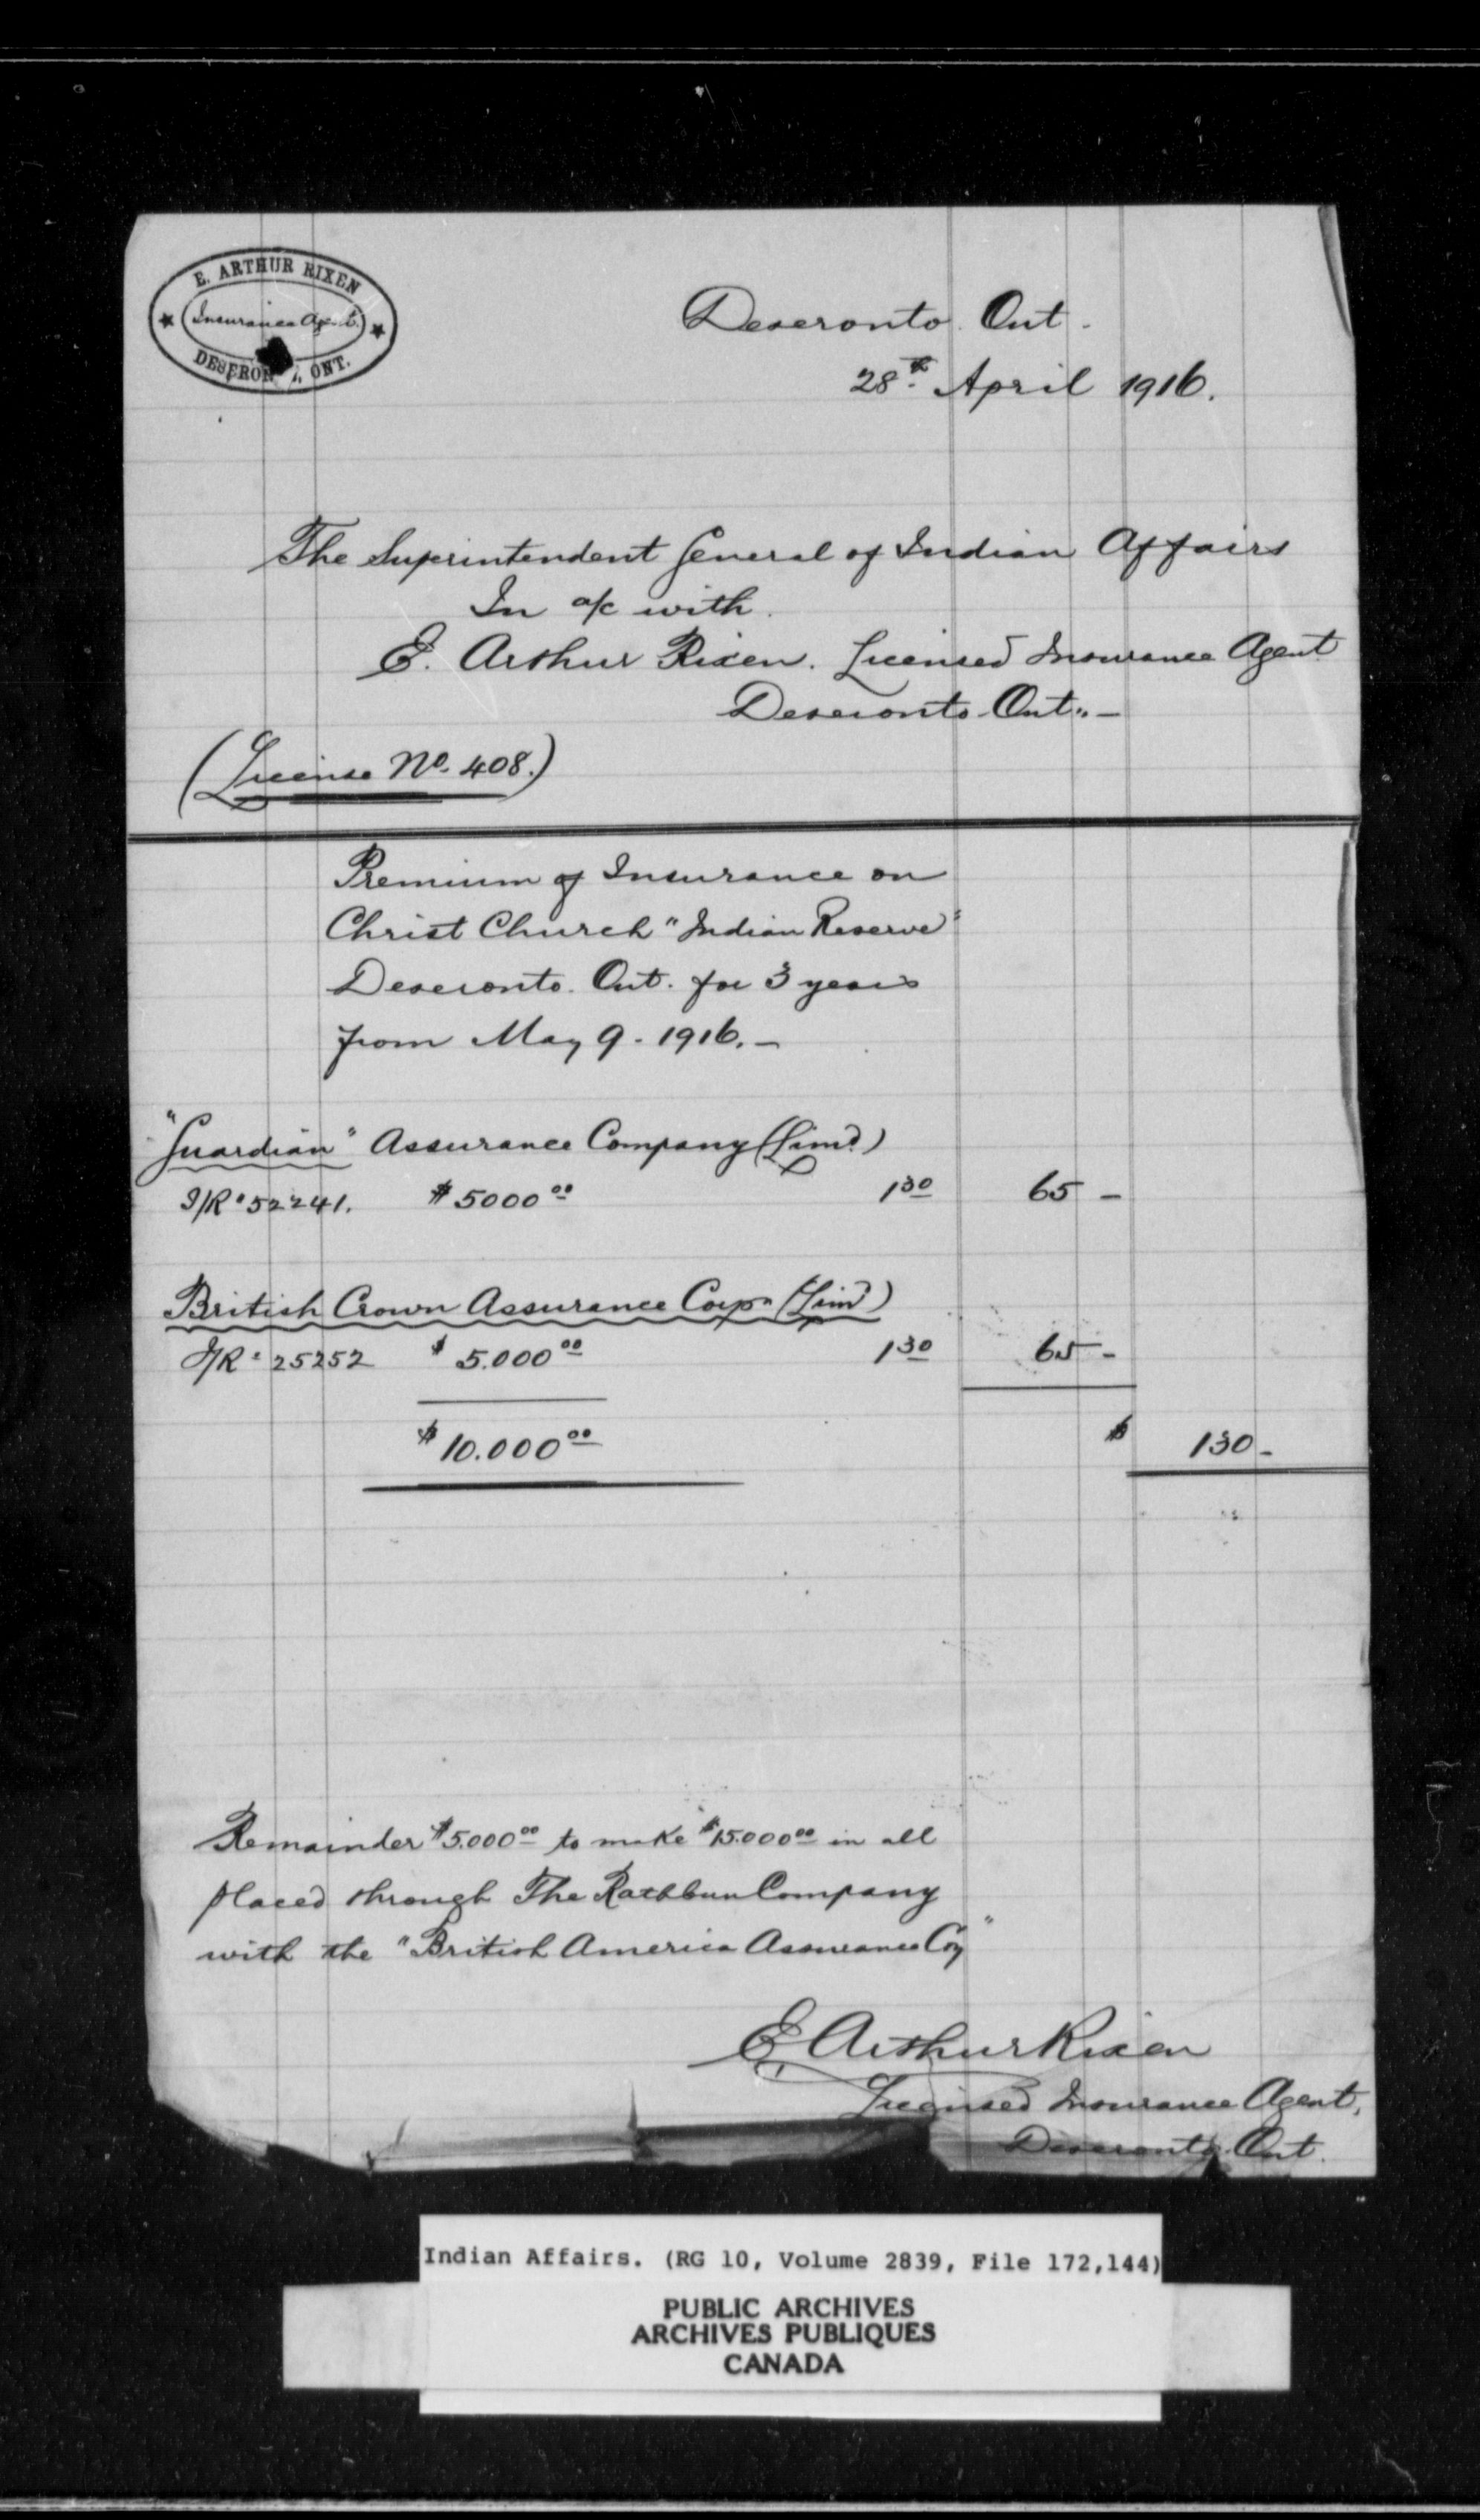 E. ARTHUR RIXEN
Insurance Agent.
DESERON , ONT.
Deseronto. Ont.
28th April 1916.
The Superintendent General of Indian Affairs
In a/c with.
E. Arthur Rixen. Licensed Insurance Agent
Deseronto Ont.
(License No. 408.)
Premium of Insurance on
Christ Church "Indian Reserve"
Deseronto. Ont. for 3 years
from May 9. 1916.
"Guardian" Assurance Company (Limd)
I/R 52241. $5000 00 1 30 65 -
British Crown Assurance Corpn (Limd)
I/R 25252 $5.000 00 1 30 65 -
$10.000 00 $ 130 -
Remainder $5.000 00 to make $15.000 00 in all
placed through The Rathbun Company
with the "British America Assurance Coy"
E Arthur Rixen
Licensed Insurance Agent,
Deseronto. Ont.
Indian Affairs. (RG 10, Volume 2839, File 172,144)
PUBLIC ARCHIVES
ARCHIVES PUBLIQUES
CANADA